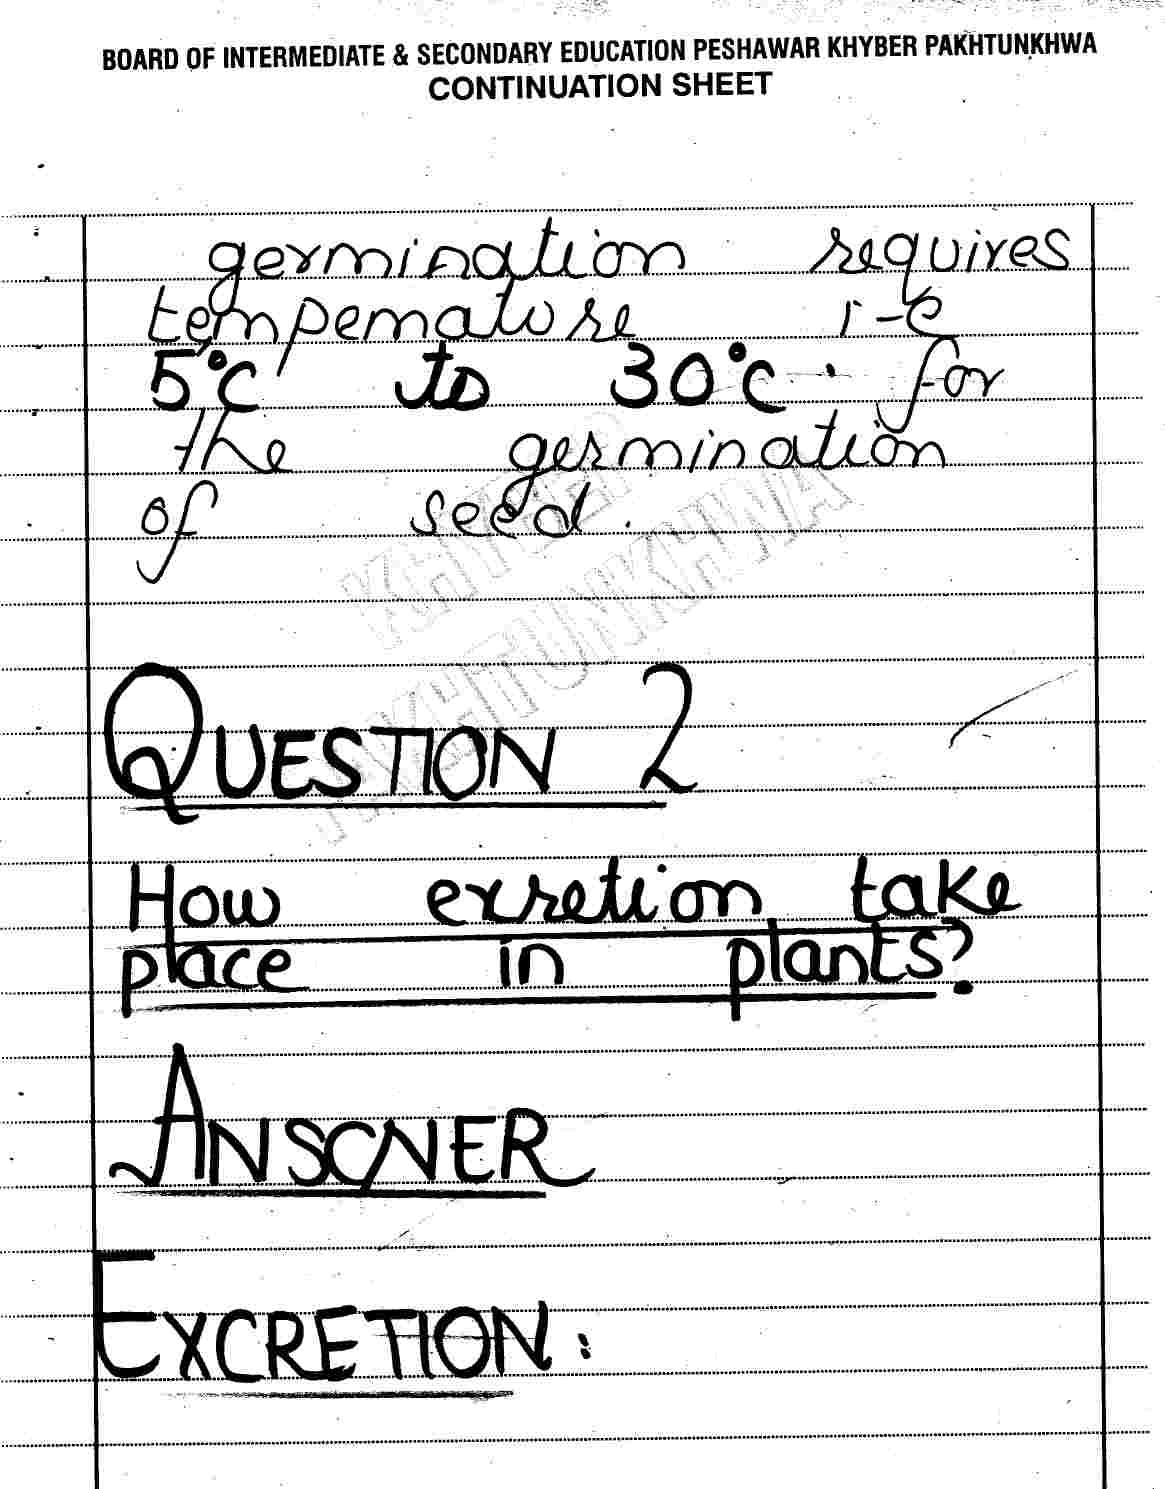 BOARD OF INTERMEDIATE & SECONDARY EDUCATION PESHAWAR KHYBER PAKHTUNKHWA
CONTINUATION SHEET
germination requires
tempemature i-e
5°C to 30°C. for
the germination
of seed.
KHYBER
PAKHTUNKHWA
QUESTION 2
How exretion take
place in plants?
ANSWER
EXCRETION: